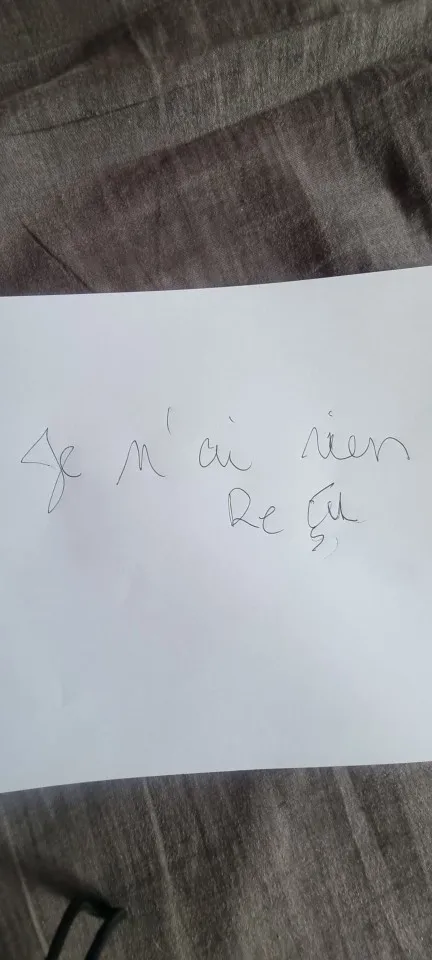 Je n'ai rien
Reçu